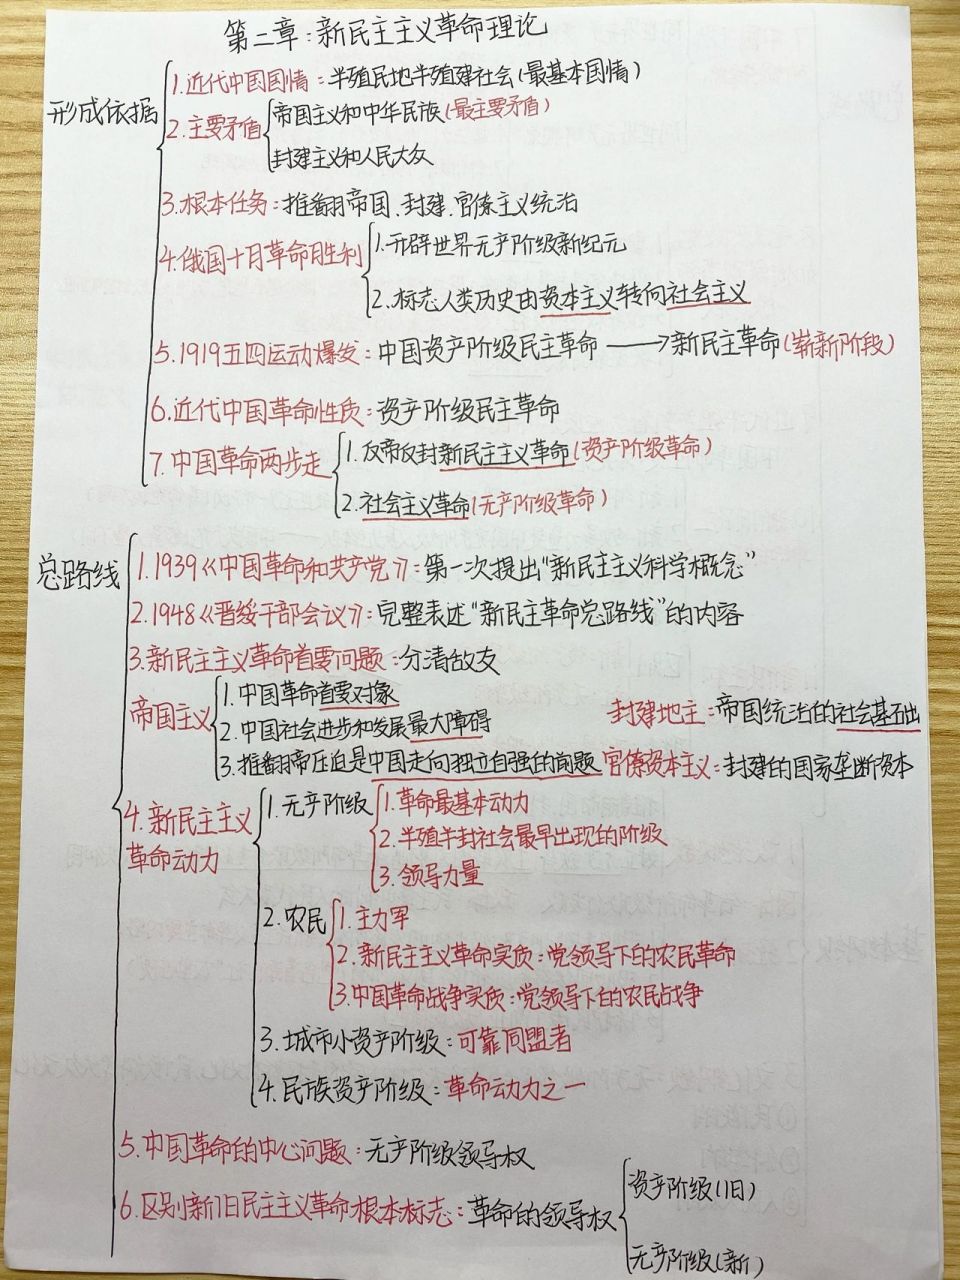 第二章：新民主主义革命理论
形成依据
1.近代中国国情：半殖民地半殖建社会(最基本国情)
2.主要矛盾
帝国主义和中华民族(最主要矛盾)
封建主义和人民大众
3.根本任务：推翻帝国、封建、官僚主义统治
4.俄国十月革命胜利
1.开辟世界无产阶级新纪元
2.标志人类历史由资本主义转向社会主义
5.1919五四运动爆发：中国资产阶级民主革命——→新民主革命(崭新阶段)
6.近代中国革命性质：资产阶级民主革命
7.中国革命两步走
1.反帝反封新民主主义革命(资产阶级革命)
2.社会主义革命(无产阶级革命)
总路线
1.1939《中国革命和共产党》：第一次提出“新民主主义科学概念”
2.1948《晋绥干部会议》：完整表述“新民主革命总路线”的内容
3.新民主主义革命首要问题：分清敌友
帝国主义
1.中国革命首要对象
2.中国社会进步和发展最大障碍
3.推翻帝压迫是中国走向独立自强的前题
封建地主：帝国统治的社会基础
官僚资本主义：封建的国家垄断资本
4.新民主主义
革命动力
1.无产阶级
1.革命最基本动力
2.半殖半封社会最早出现的阶级
3.领导力量
2.农民
1.主力军
2.新民主主义革命实质：党领导下的农民革命
3.中国革命战争实质：党领导下的农民战争
3.城市小资产阶级：可靠同盟者
4.民族资产阶级：革命动力之一
5.中国革命的中心问题：无产阶级领导权
6.区别新旧民主主义革命根本标志：革命的领导权
资产阶级(旧)
无产阶级(新)